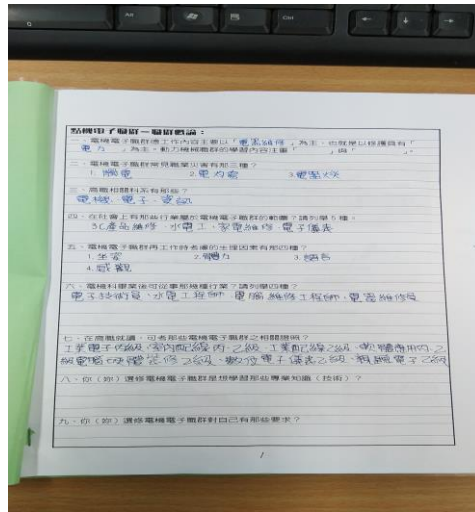 電機電子職群－職群概論：
一、電機電子職群總工作內容主要以「電器維修」為主，也就是以修護具有「
電力」為主，動力機械職群的學習內容注重「　」與「　」。
二、電機電子職群常見職業災害有那三種？
1.觸電 2.電灼傷 3.電器火災
三、高職相關科系有那些？
電機、電子、資訊
四、在社會上有那些行業屬於電機電子職群的範疇？請列舉5種。
3C產品維修、水電工、家電維修、電子儀表
五、電機電子職群再工作時考慮的生理因素有那四種？
1. 2.體力 3.
4.感觀
六、電機科畢業後可從事那幾種行業？請列舉四種？
電子技術員、水電工程師、電腦維修工程師、電器維修員
七、在高職就讀，可考那些電機電子職群之相關證照？
工業電子丙級、室內配線丙、乙級、工業配線乙級、軟體應用丙、乙
級電腦硬體裝修乙級、數位電子儀表乙級、視聽電子乙級
八、你（妳）選修電機電子職群是想學習那些專業知識（技術）？
九、你（妳）選修電機電子職群對自己有那些要求？
1